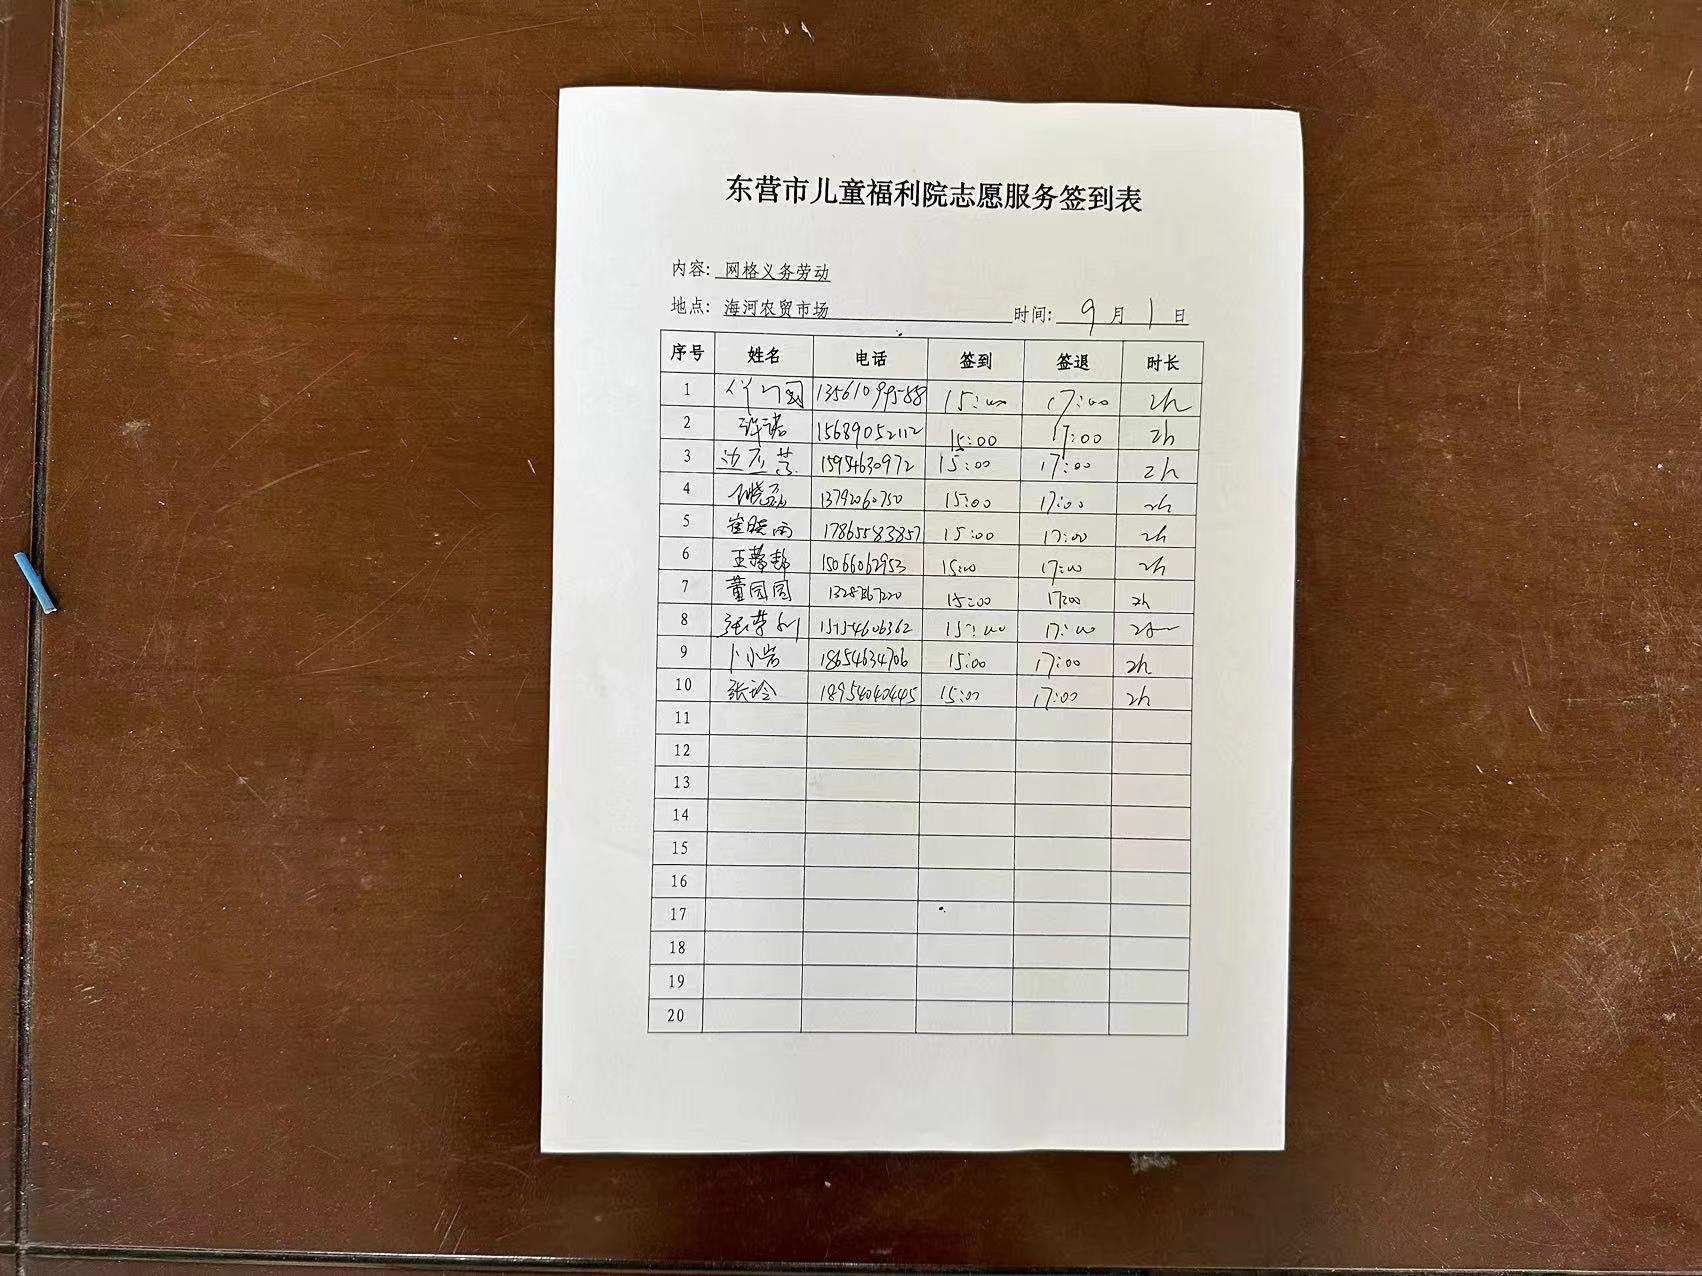 东营市儿童福利院志愿服务签到表
内容: 网格义务劳动
地点: 海河农贸市场 时间: 9月1日
序号 姓名 电话 签到 签退 时长
1 13561099588 15:00 17:00 2h
2 许诺 15689052112 15:00 17:00 2h
3 15954630972 15:00 17:00 2h
4 13792060750 15:00 17:00 2h
5 崔晓雨 17865583857 15:00 17:00 2h
6 15066062953 15:00 17:00 2h
7 董园园 15:00 17:00 2h
8 15154606362 15:00 17:00 2h
9 卜小岩 18654634706 15:00 17:00 2h
10 张玲 18954040445 15:00 17:00 2h
11
12
13
14
15
16
17
18
19
20